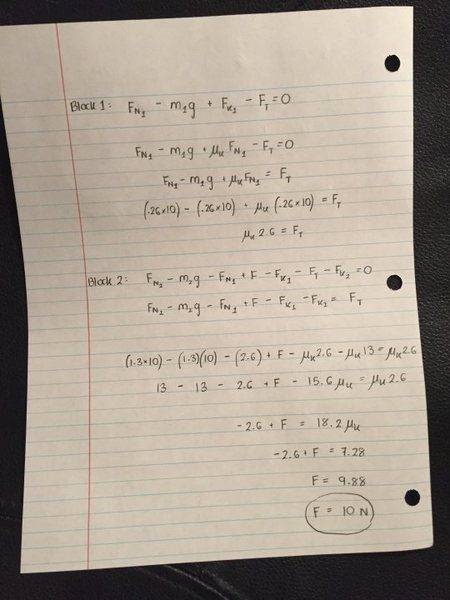 Block 1: F_N1 - m₁g + F_K1 - F_T = 0
F_N1 - m₁g + μ_K F_N1 - F_T = 0
F_N1 - m₁g + μ_K F_N1 = F_T
(.26×10) - (.26×10) + μ_K (.26×10) = F_T
μ_K 2.6 = F_T
Block 2: F_N2 - m₂g - F_N1 + F - F_K1 - F_T - F_K2 = 0
F_N2 - m₂g - F_N1 + F - F_K1 - F_K2 = F_T
(1.3×10) - (1.3)(10) - (2.6) + F - μ_K 2.6 - μ_K 13 = μ_K 2.6
13 - 13 - 2.6 + F - 15.6 μ_K = μ_K 2.6
-2.6 + F = 18.2 μ_K
-2.6 + F = 7.28
F = 9.88
F = 10 N